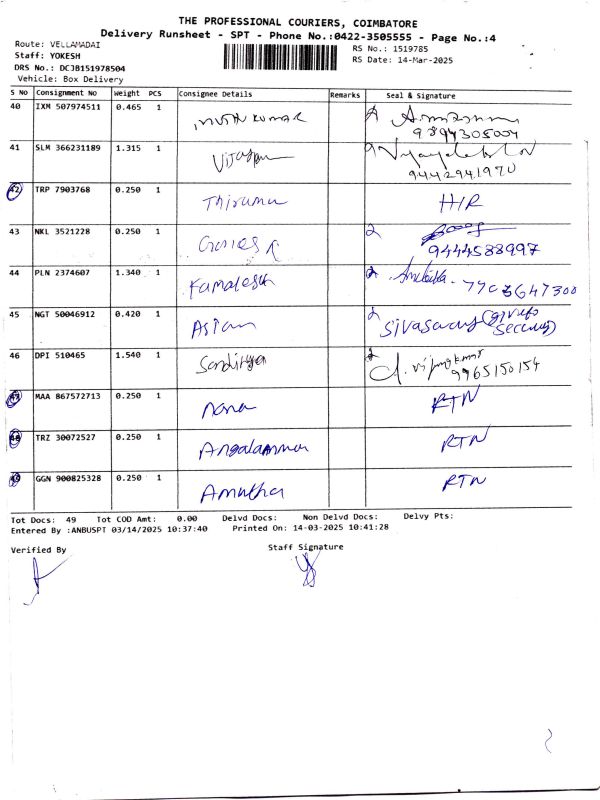 THE PROFESSIONAL COURIERS, COIMBATORE
Delivery Runsheet - SPT - Phone No.:0422-3505555 - Page No.:4
Route: VELLAMADAI
Staff: YOKESH
DRS No.: DCJB151978504
Vehicle: Box Delivery
RS No.: 1519785
RS Date: 14-Mar-2025
S No Consignment No Weight PCS Consignee Details Remarks Seal & Signature
40 IXM 507974511 0.465 1 Muthu kumar
41 SLM 366231189 1.315 1 9442941970
42 TRP 7903768 0.250 1 H/R
43 NKL 3521228 0.250 1 9444588997
44 PLN 2374607 1.340 1 Kamalesh
45 NGT 50046912 0.420 1 Asian
46 DPI 510465 1.540 1 9965150154
47 MAA 867572713 0.250 1 RTN
48 TRZ 30072527 0.250 1 Angalamman RTN
49 GGN 900825328 0.250 1 Amutha RTN
Tot Docs: 49 Tot COD Amt: 0.00 Delvd Docs: Non Delvd Docs: Delvy Pts:
Entered By :ANBUSPT 03/14/2025 10:37:40 Printed On: 14-03-2025 10:41:28
Verified By Staff Signature